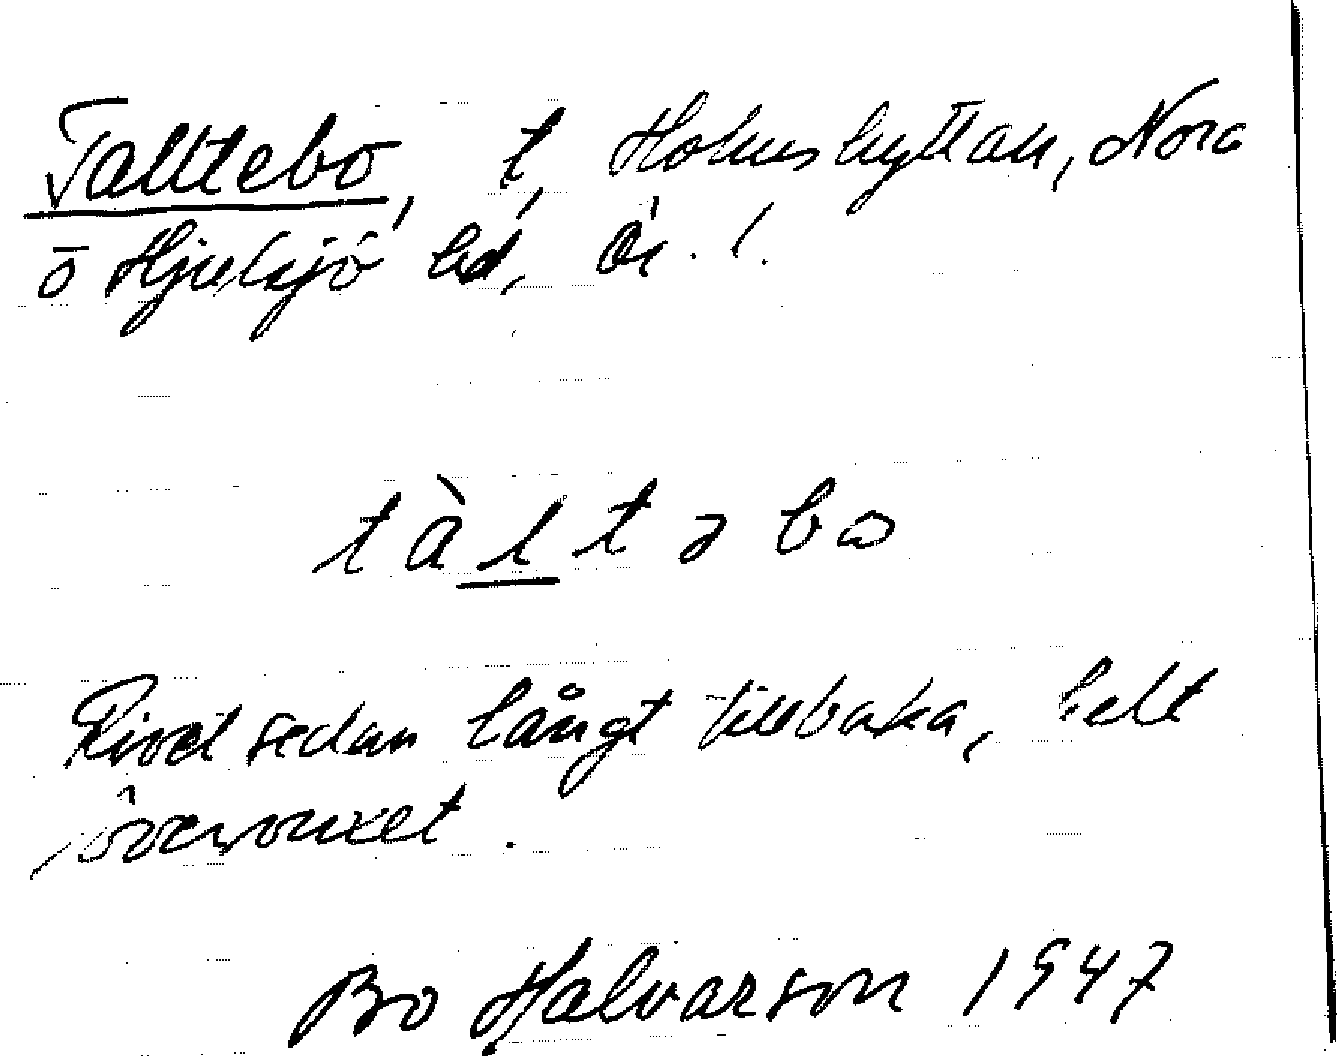 Talltebo, t, Holmshyttan, Nora
o Hjulsjö bd, Ör. l.
tàltəbo
Rivet sedan långt tillbaka, helt
övervuxet.
Bo Halvarson 1947